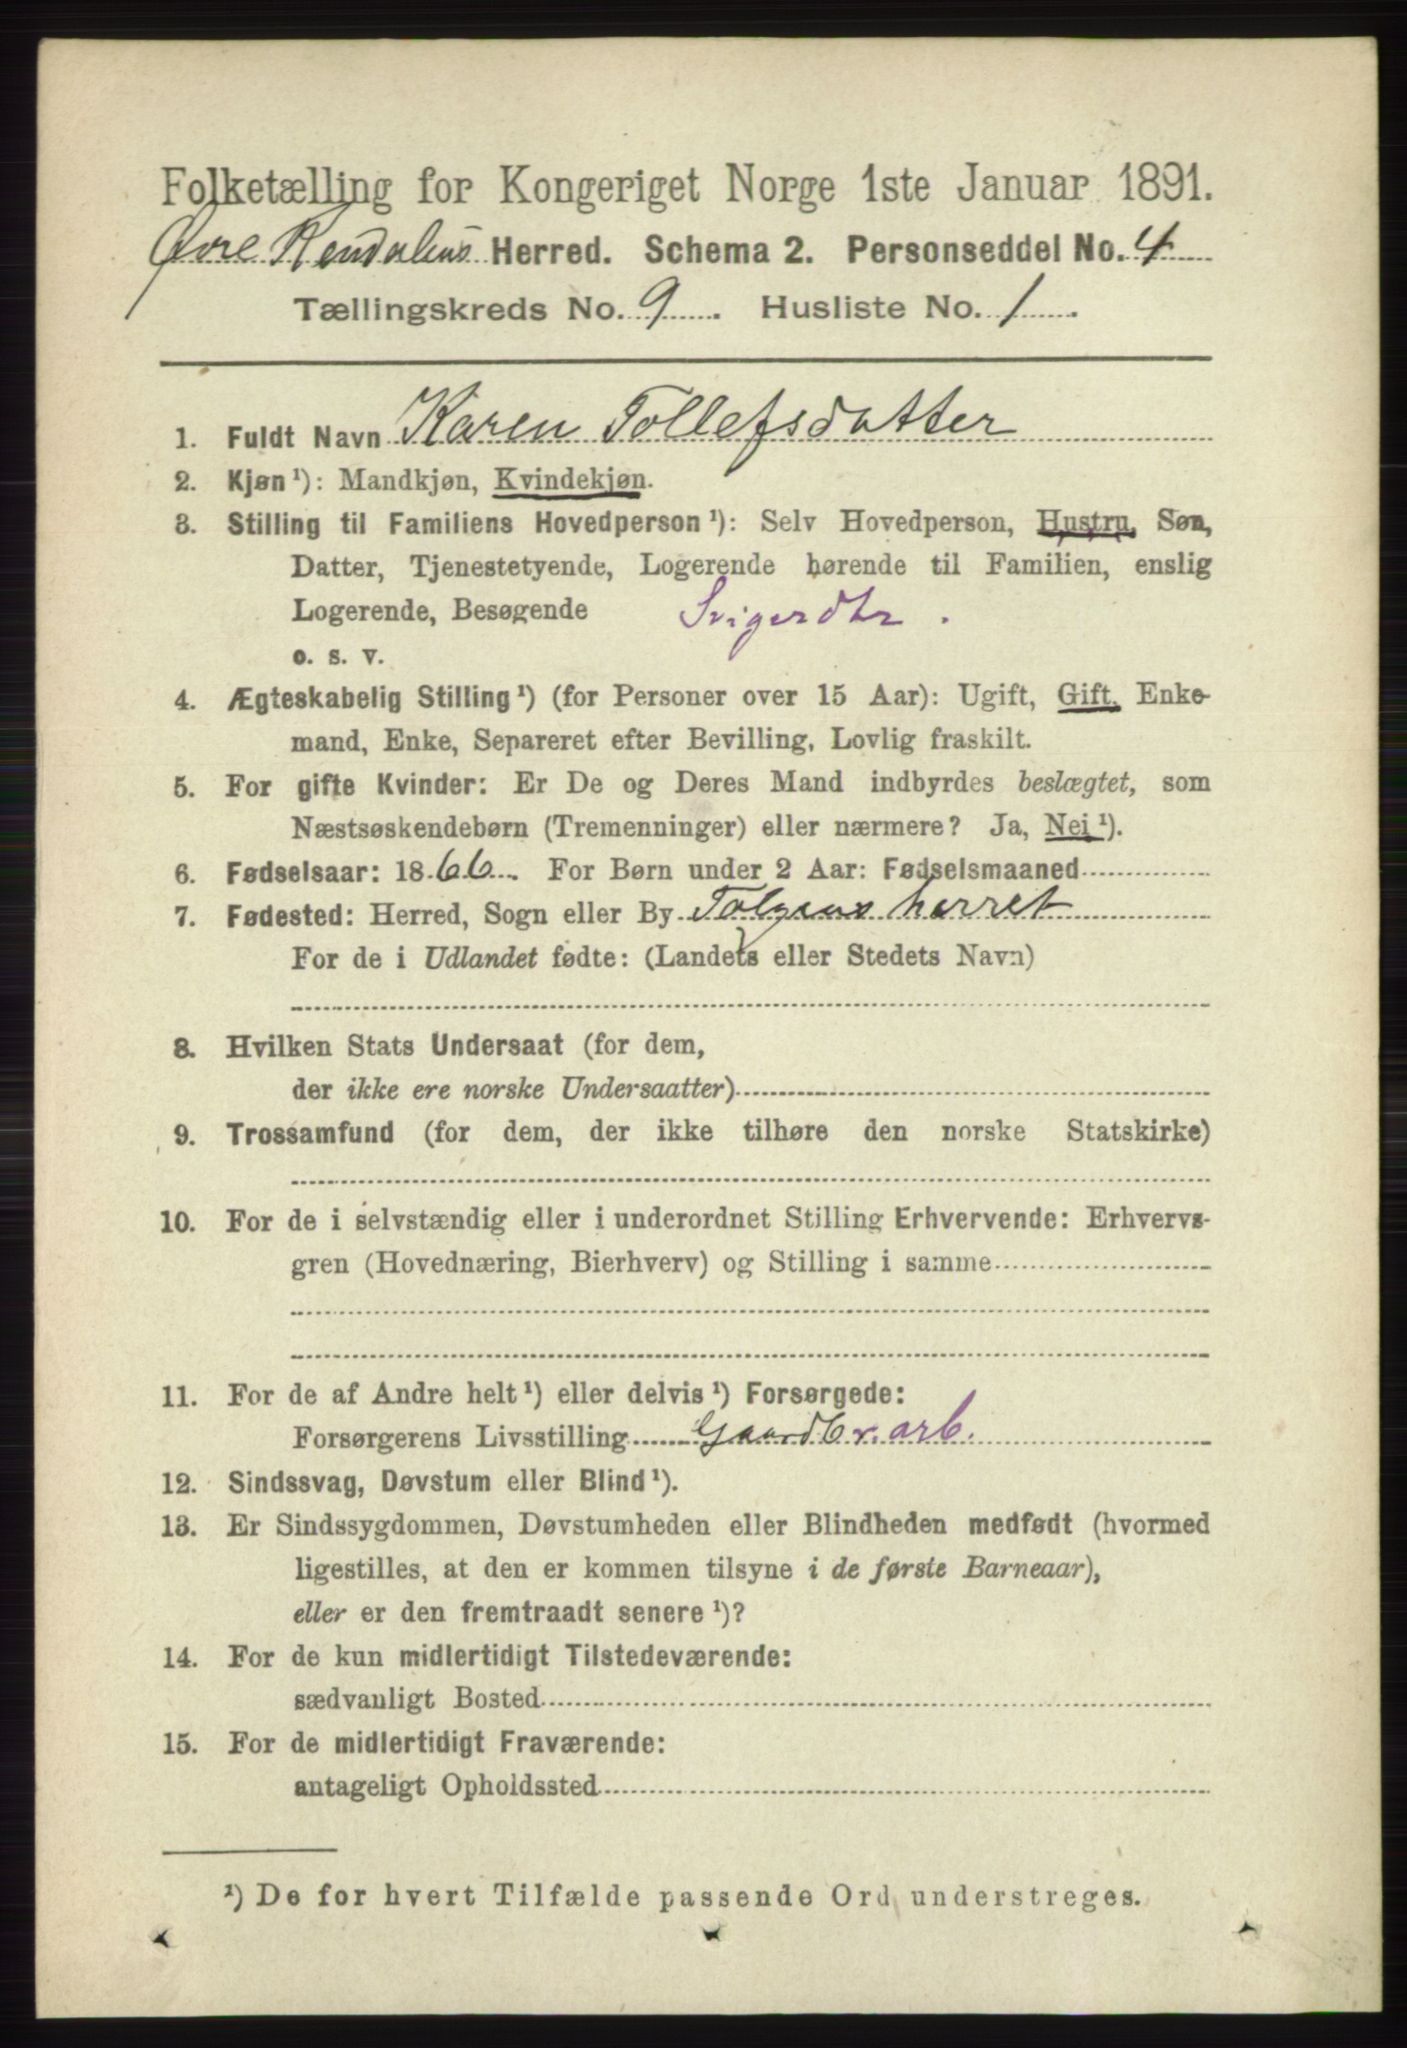 Folketælling for Kongeriget Norge 1ste Januar 1891.
Øvre Rendalens Herred. Schema 2. Personseddel No. 4
Tællingskreds No. 9. Husliste No. 1.
1. Fuldt Navn Karen Tollefsdatter
2. Kjøn¹): Mandkjøn, Kvindekjøn.
3. Stilling til Familiens Hovedperson¹): Selv Hovedperson, Hustru, Søn,
Datter, Tjenestetyende, Logerende hørende til Familien, enslig
Logerende, Besøgende Svigerdtr.
o. s. v.
4. Ægteskabelig Stilling¹) (for Personer over 15 Aar): Ugift, Gift, Enke-
mand, Enke, Separeret efter Bevilling, Lovlig fraskilt.
5. For gifte Kvinder: Er De og Deres Mand indbyrdes beslægtet, som
Næstsøskendebørn (Tremenninger) eller nærmere? Ja, Nei¹).
6. Fødselsaar: 1866. For Børn under 2 Aar: Fødselsmaaned
7. Fødested: Herred, Sogn eller By Tolgens herret
For de i Udlandet fødte: (Landets eller Stedets Navn)
8. Hvilken Stats Undersaat (for dem,
der ikke ere norske Undersaatter)
9. Trossamfund (for dem, der ikke tilhøre den norske Statskirke)
10. For de i selvstændig eller i underordnet Stilling Erhvervende: Erhvervs-
gren (Hovednæring, Bierhverv) og Stilling i samme
11. For de af Andre helt¹) eller delvis¹) Forsørgede:
Forsørgerens Livsstilling Gaardbr. arb.
12. Sindssvag, Døvstum eller Blind¹).
13. Er Sindssygdommen, Døvstumheden eller Blindheden medfødt (hvormed
ligestilles, at den er kommen tilsyne i de første Barneaar),
eller er den fremtraadt senere¹)?
14. For de kun midlertidigt Tilstedeværende:
sædvanligt Bosted
15. For de midlertidigt Fraværende:
antageligt Opholdssted
¹) De for hvert Tilfælde passende Ord understreges.